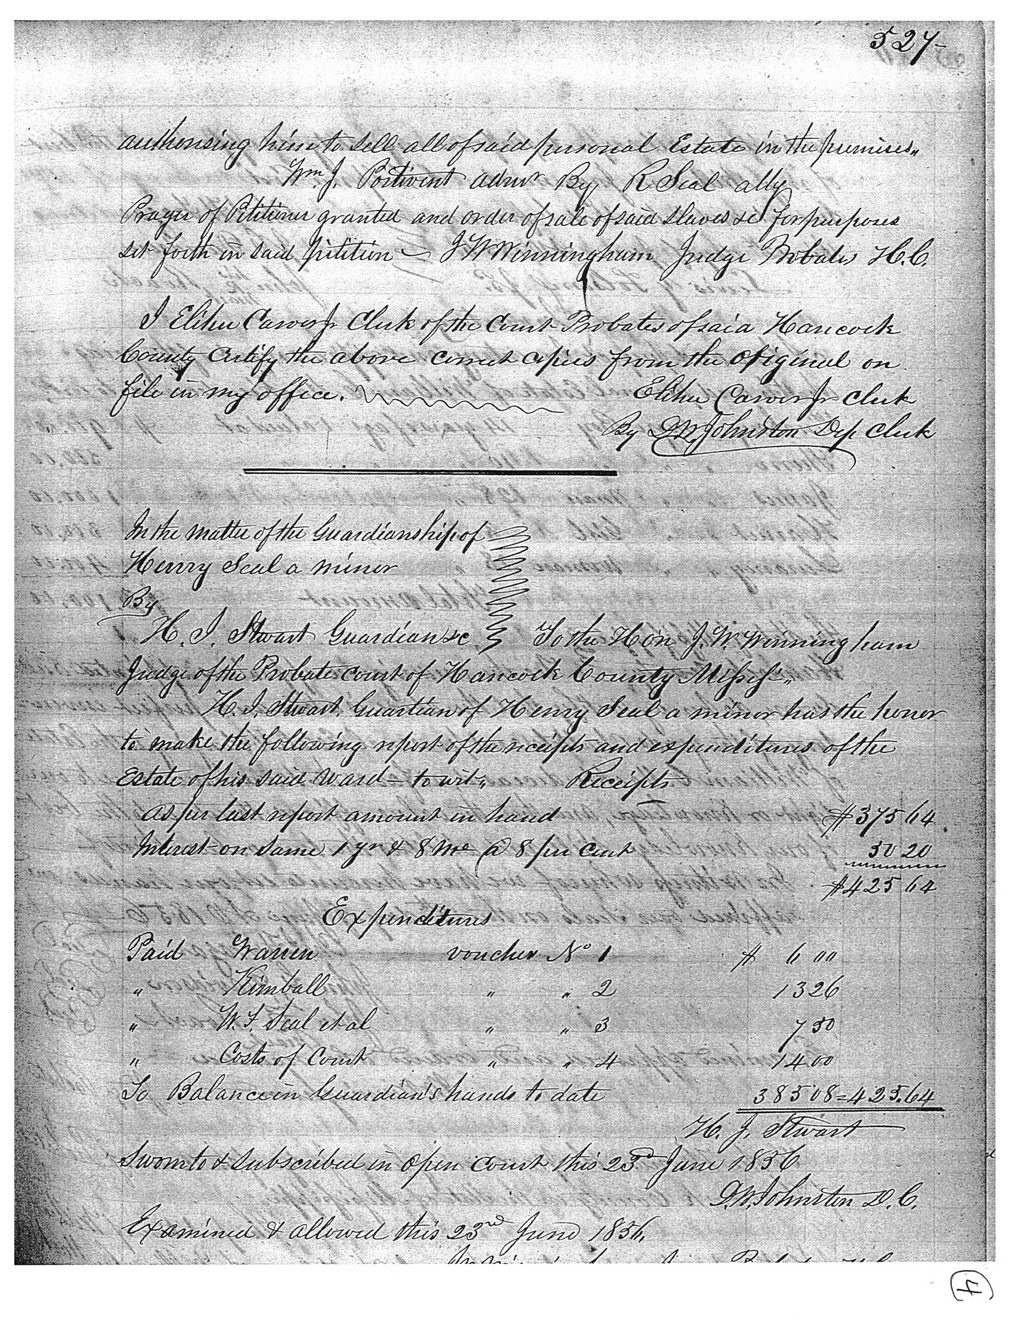 527-
authorising him to sell all of said personal Estate in the premises "
Wm J Poitivent admr By R Seal atty
Prayer of Petitioner granted and order of sale of said slaves &c for purposes
set forth in said petition J W Winningham Judge Probates H.C.
I Elihu Carver Jr Clerk of the Court Probates of said Hancock
County certify the above correct copies from the original on
file in my office. Elihu Carver Jr clerk
By D.W. Johnston Dep Clerk
In the matter of the Guardianship of
Henry Seal a minor
By
H. J. Stwart Guardian &c. To the Hon J. W. Winningham
Judge of the Probate court of Hancock County Missi "
H. J. Stwart, Guardian of Henry Seal a minor has the honor
to make the following report of the receipts and expenditures of the
Estate of his said Ward - to wit " Receipts
As per last report amount in hand $ 375 64
Interest on same 1 yr & 8 mo @ 8 per cent 50 20
$ 425 64
Expenditures
Paid Warren voucher No 1 $ 6 00
" Kimball " " 2 13 26
" W. F. Seal et al " " 3 7 50
" Costs of Court " " 4 14 00
To Balance in Guardian's hands to date 385 08 = 425.64
H. J. Stwart
Sworn to & subscribed in open court this 23d June 1856
D.W. Johnston D.C.
Examined & allowed this 23rd June 1856.
4